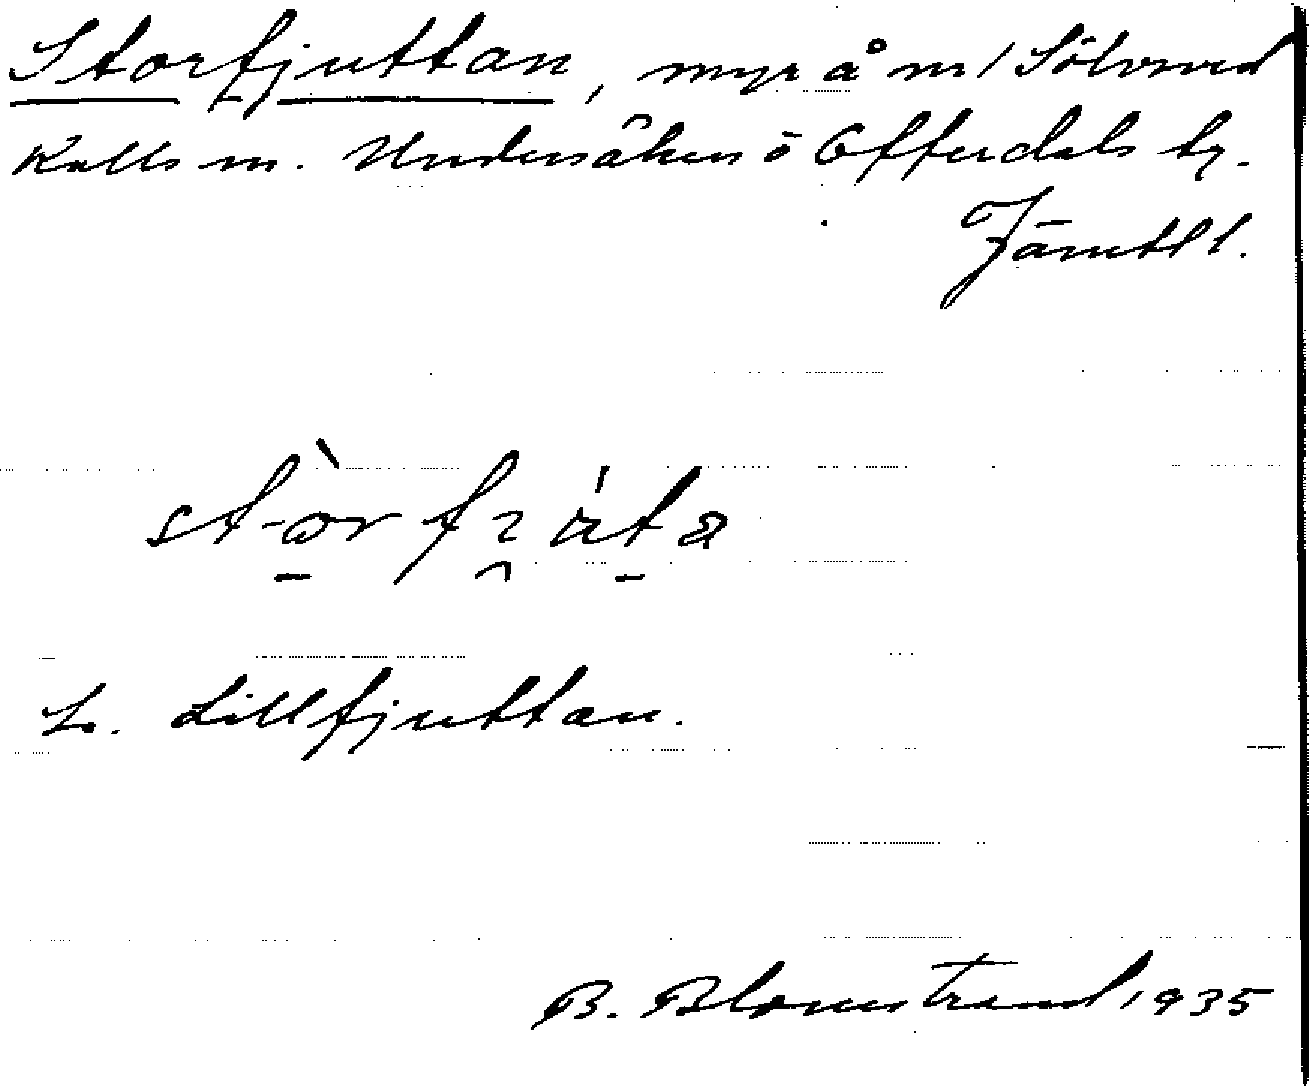 Storfjuttan, myr å m/ Sölvsved
Kalls sn. Undersåkers o Offerdals tg.
Jämtl.
L. Lillfjuttan.
B. Blomstrand 1935